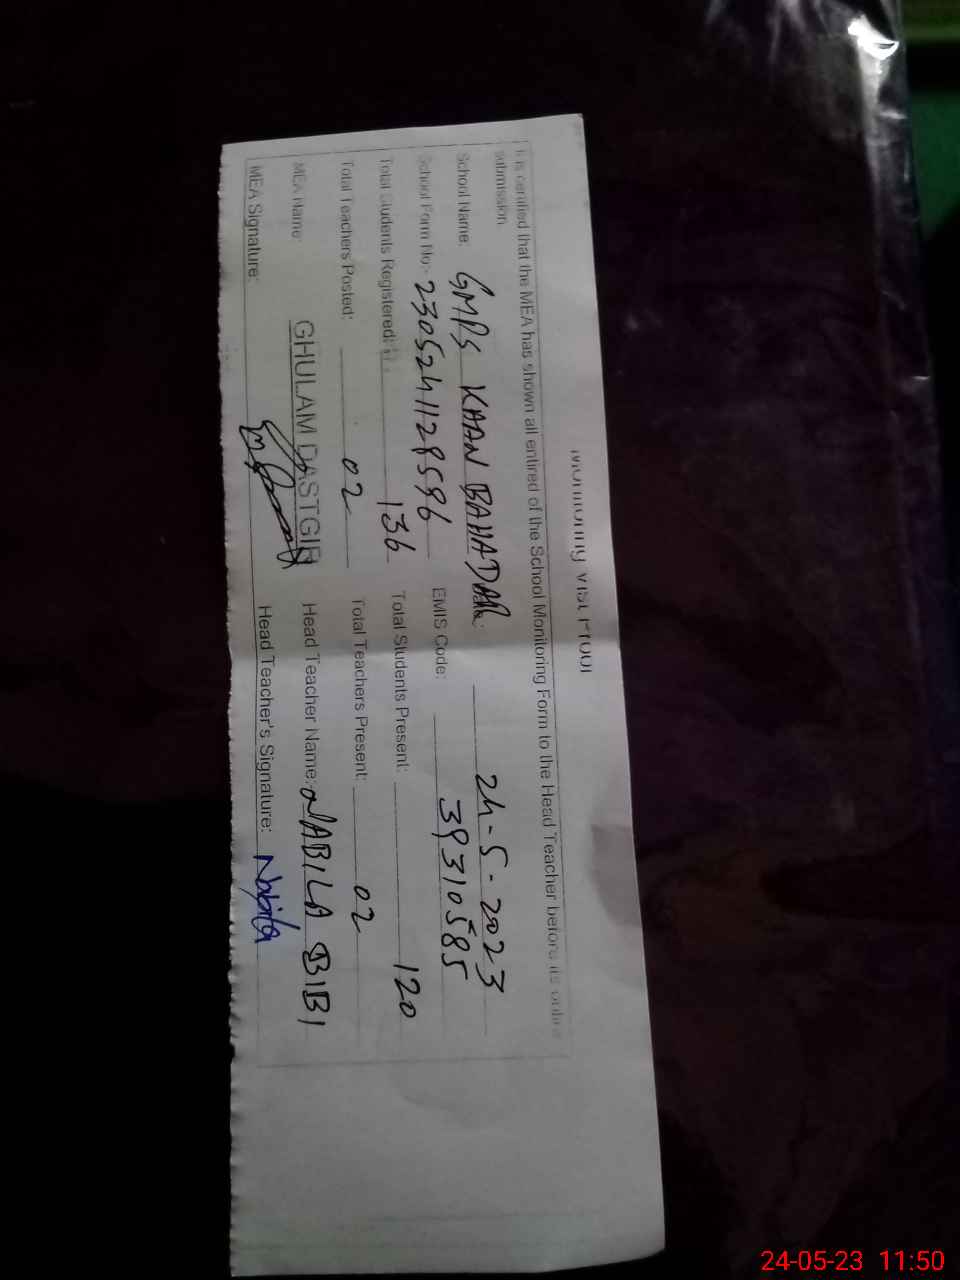 Monitoring Visit Proof
It is certified that the MEA has shown all entired of the School Monitoring Form to the Head Teacher before its online
submission
School Name: GMPS KHAN BAHADAR 24-5-2023
School Form No:- 2305241128596 EMIS Code: 39310585
Total Students Registered: 136 Total Students Present: 120
Total Teachers Posted: 02 Total Teachers Present: 02
MEA Name: GHULAM DASTGIR Head Teacher Name: NABILA BIBI
MEA Signature: Head Teacher's Signature: Nabila
24-05-23 11:50